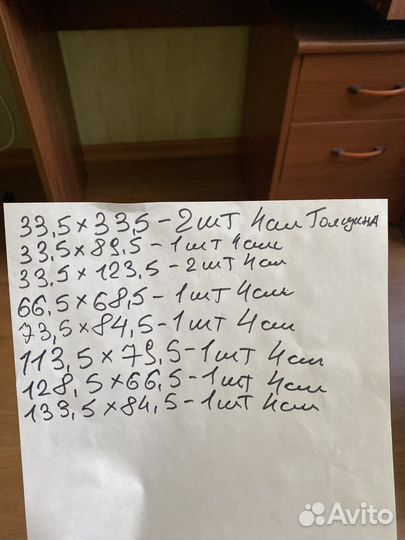 33,5×33,5-2шт 4см Толщина
33,5×89,5-1шт 4см
33,5×123,5-2шт 4см
66,5×68,5-1шт 4см
73,5×84,5-1шт 4см
113,5×79,5-1шт 4см
128,5×66,5-1шт 4см
139,5×84,5-1шт 4см
Avito